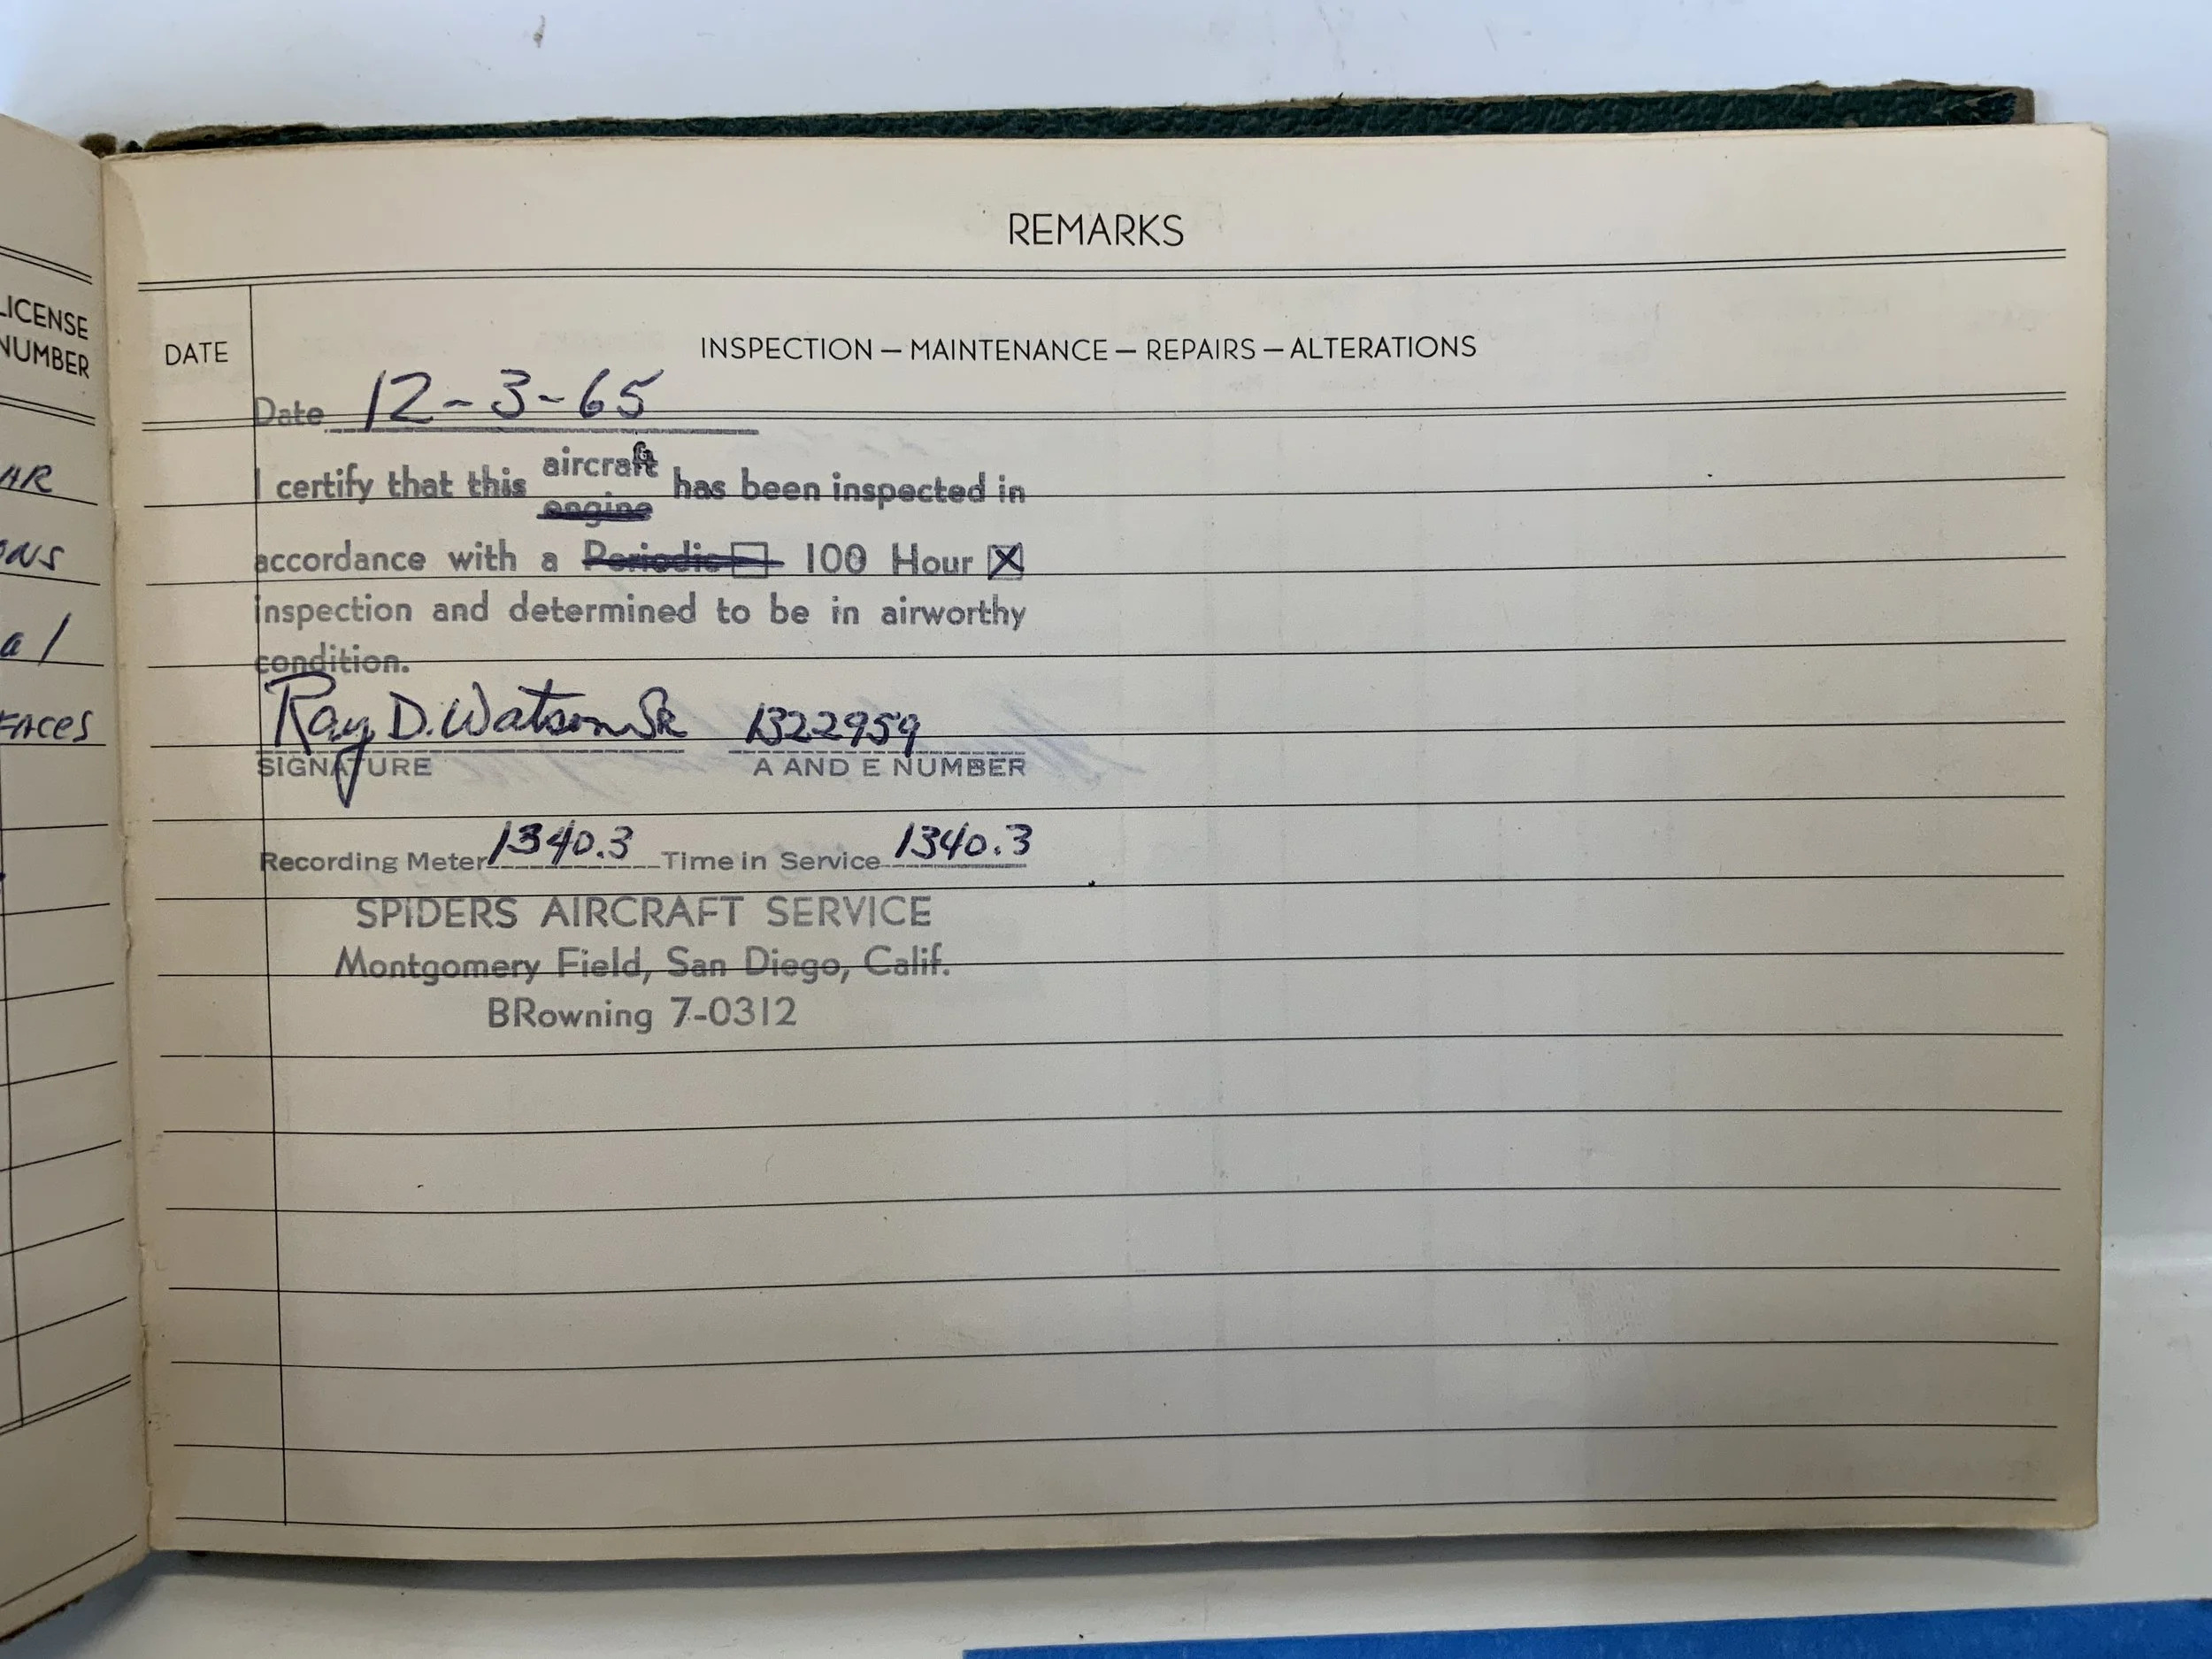 LICENSE
NUMBER
AR
ONS
al
FACES
REMARKS
DATE
INSPECTION — MAINTENANCE — REPAIRS — ALTERATIONS
Date 12-3-65
I certify that this aircraft engine has been inspected in
accordance with a Periodic 100 Hour X
inspection and determined to be in airworthy
condition.
Ray D. Watson Sr 1322959
SIGNATURE A AND E NUMBER
Recording Meter 1340.3 Time in Service 1340.3
SPIDERS AIRCRAFT SERVICE
Montgomery Field, San Diego, Calif.
BRowning 7-0312